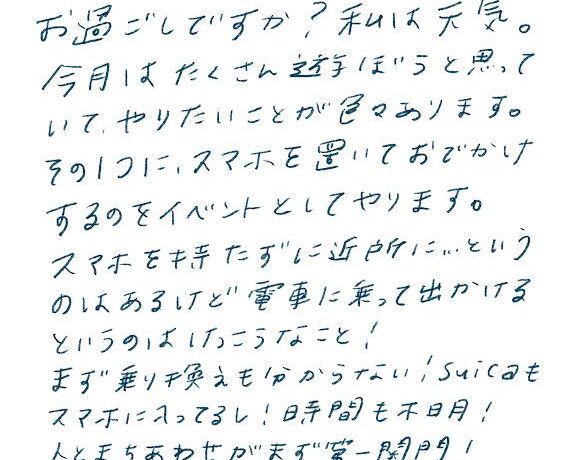 お過ごしですか？私は元気。
今月はたくさん遊ぼうと思って
いて、やりたいことが色々あります。
その1つに、スマホを置いておでかけ
するのをイベントとしてやります。
スマホを持たずに近所に…という
のはあるけど電車に乗って出かける
というのはけっこうなこと！
まず乗り換えも分からない！Suicaも
スマホに入ってるし！時間も不明！
人とまちあわせがまず第一関門！